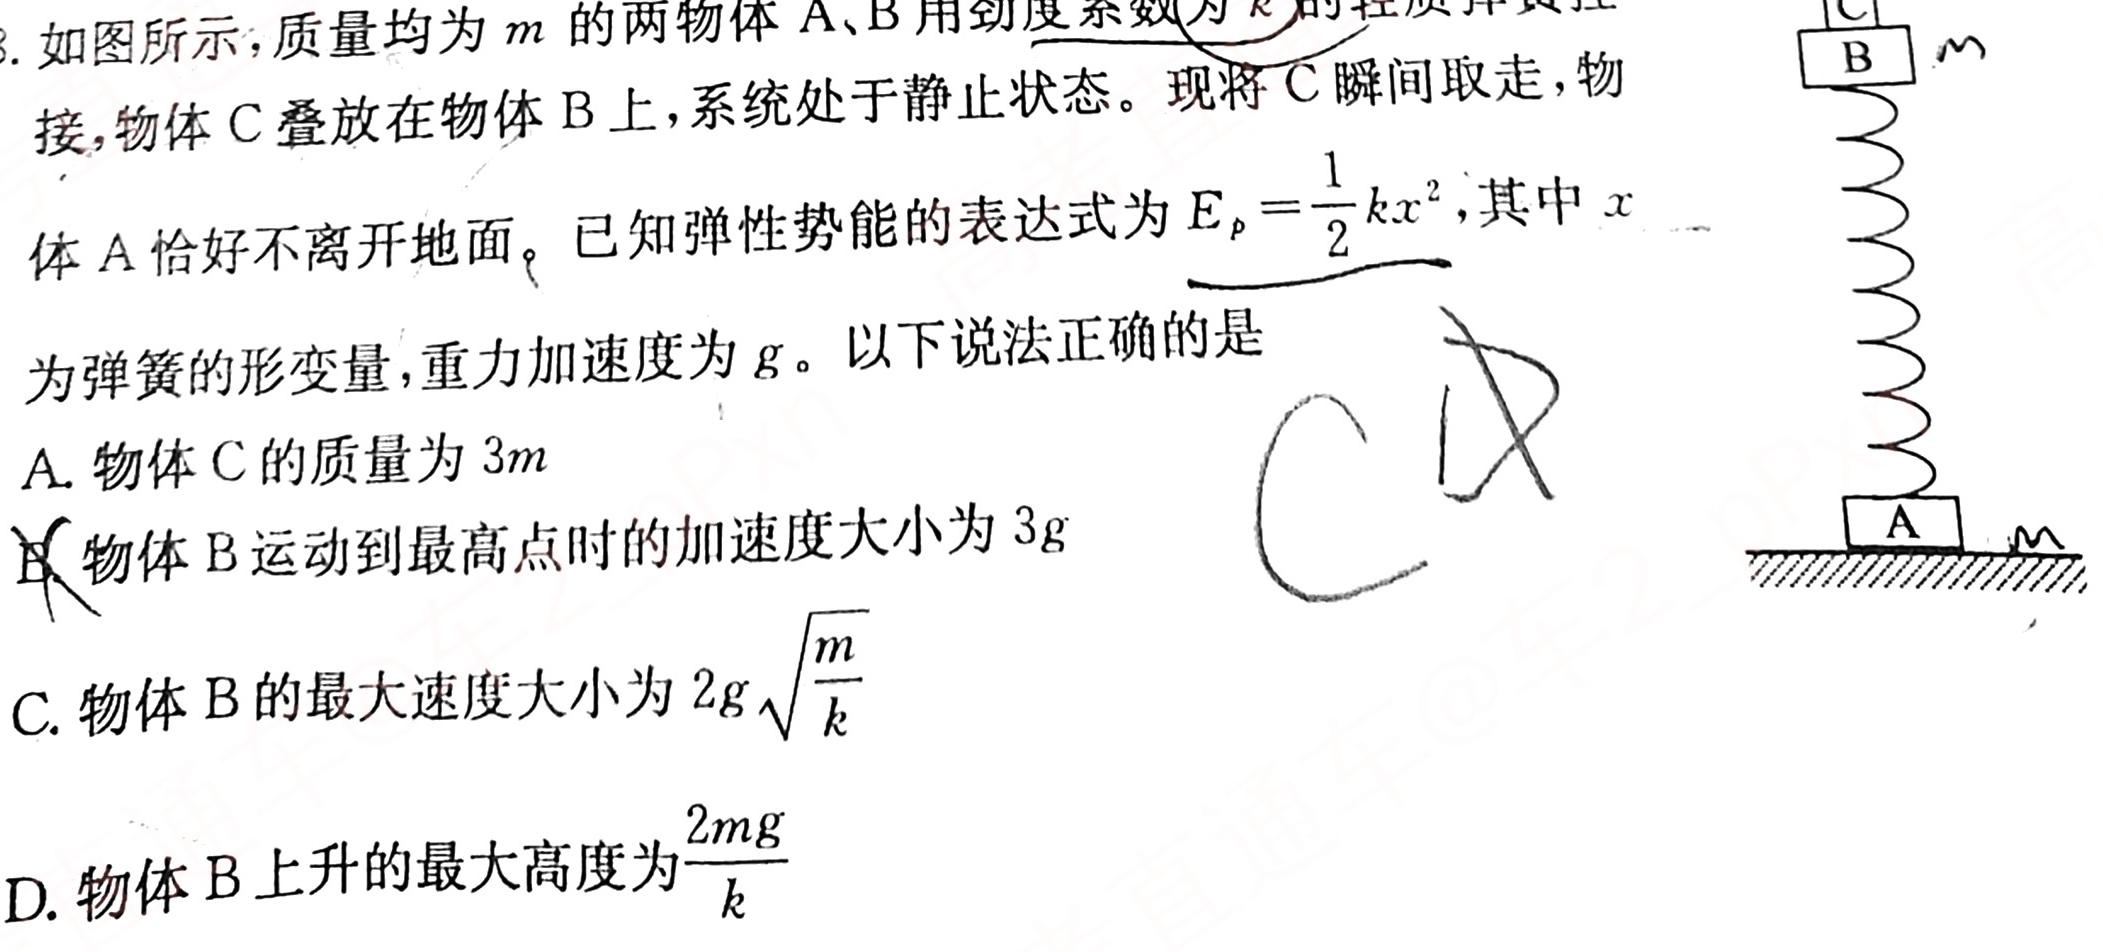 3. 如图所示,质量均为 m 的两物体 A、B 用劲度系数为 k 的轻质弹簧拴
接,物体 C 叠放在物体 B 上,系统处于静止状态。现将 C 瞬间取走,物
体 A 恰好不离开地面。已知弹性势能的表达式为 Eₚ=1/2 kx²,其中 x
为弹簧的形变量,重力加速度为 g。以下说法正确的是
A. 物体 C 的质量为 3m
B. 物体 B 运动到最高点时的加速度大小为 3g
C. 物体 B 的最大速度大小为 2g√(m/k)
D. 物体 B 上升的最大高度为 2mg/k
C D
C
B m
A m